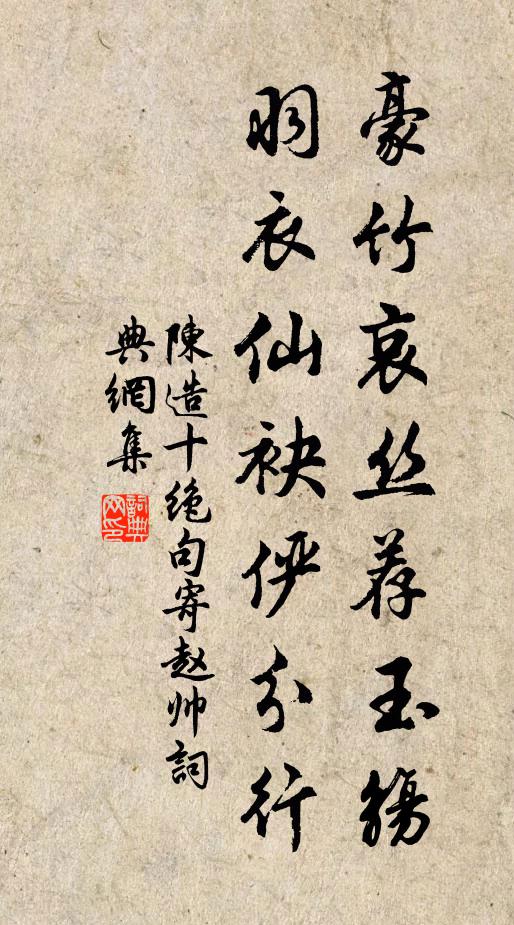 豪竹哀丝荐玉觞
羽衣仙袂俨分行
陳造十绝句寄赵帅詞
典網集
詞典网印